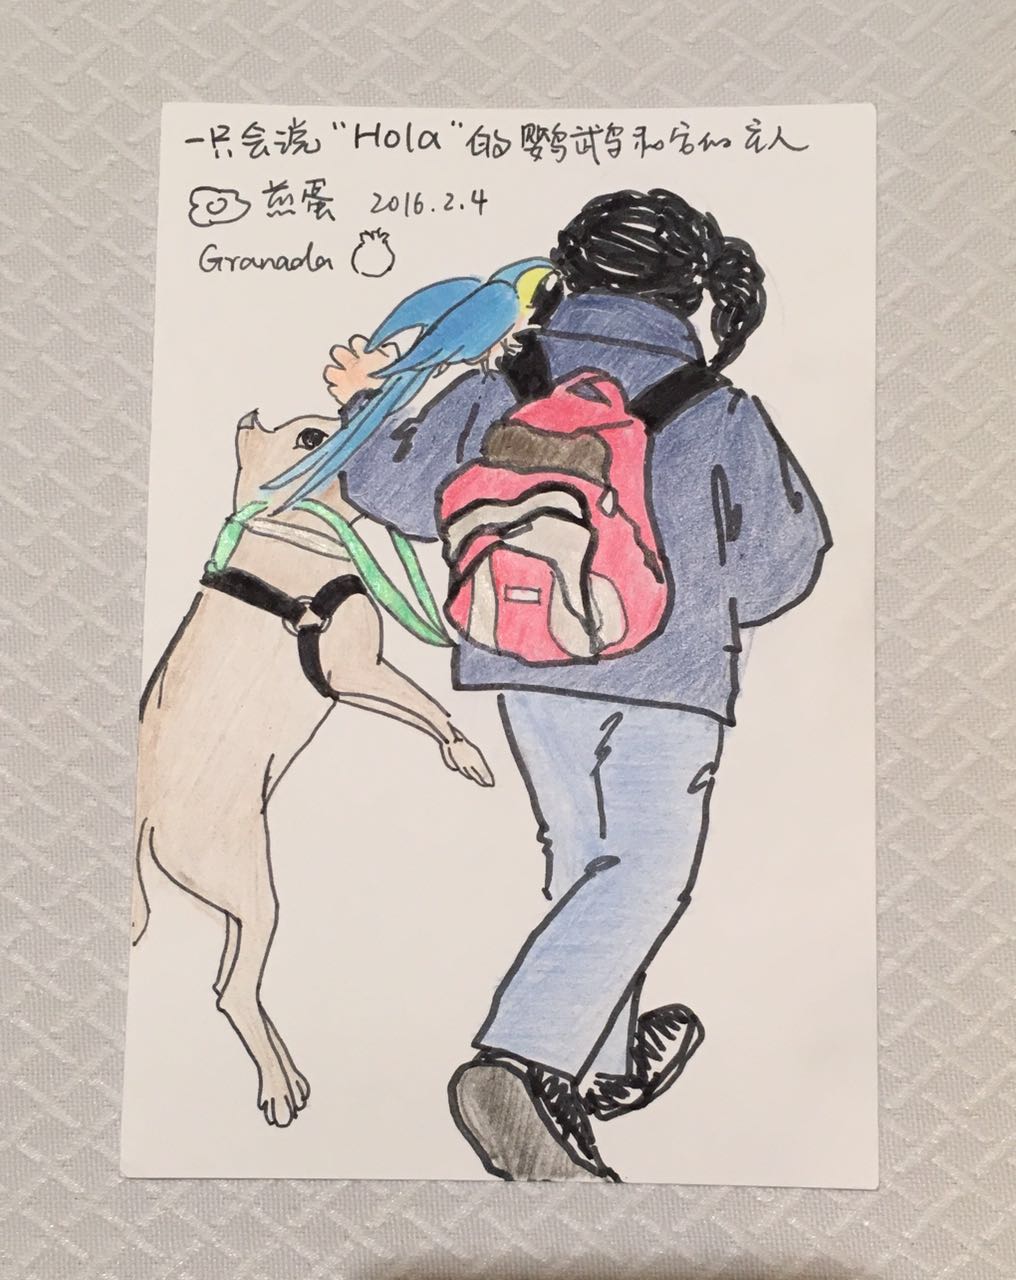 一只会说"Hola"的鹦鹉和它的主人
煎蛋 2016.2.4
Granada